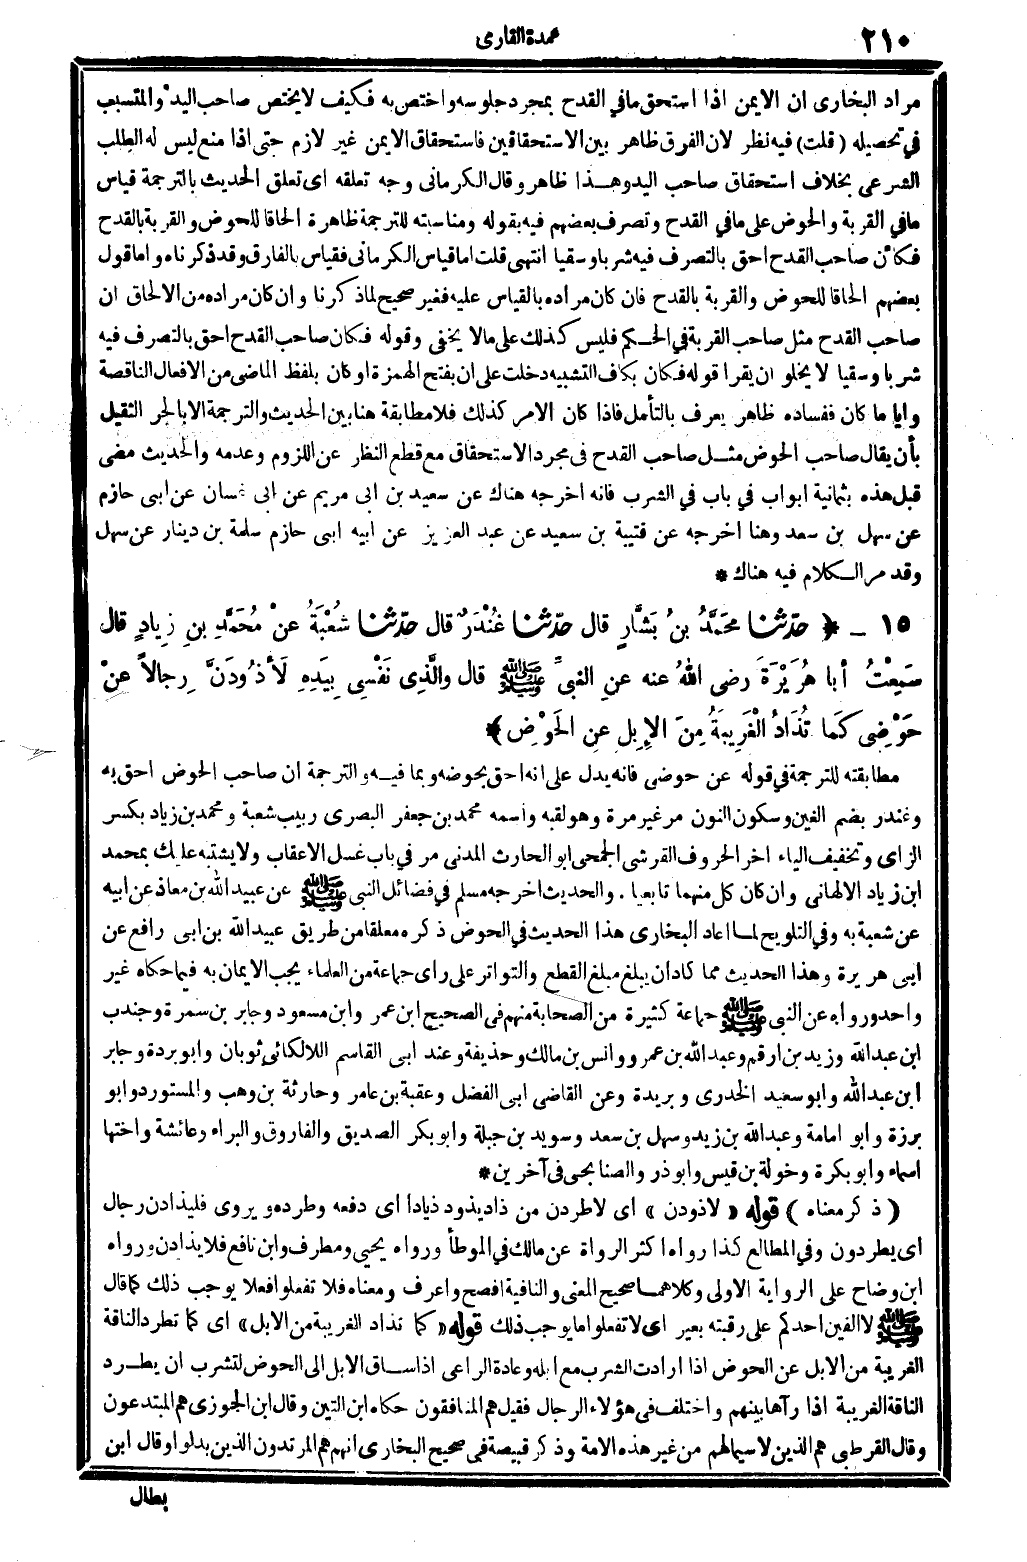 ٢١٠
عمدة القارى
مراد البخارى ان الايمن اذا استحق مافي القدح بمجرد جلوسه واختص به فكيف لا يختص صاحب اليد والمتسبب
في تحصيله ( قلت ) فيه نظر لان الفرق ظاهر بين الاستحقاقين فاستحقاق الايمن غير لازم حتى اذا منع ليس له الطلب
الشرعى بخلاف استحقاق صاحب اليد وهذا ظاهر وقال الكرمانى وجه تعلقه اى تعلق الحديث بالترجمة قياس
مافي القربة والحوض على مافي القدح وتصرف بعضهم فيه بقوله ومناسبته للترجمة ظاهرة الحاقا للحوض والقربة بالقدح
فكأن صاحب القدح احق بالتصرف فيه شربا وسقيا انتهى قلت اما قياس الكرمانى فقياس بالفارق وقد ذكرناه واما قول
بعضهم الحاقا للحوض والقربة بالقدح فان كان مراده بالقياس عليه فغير صحيح لما ذكرنا وان كان مراده من الالحاق ان
صاحب القدح مثل صاحب القربة في الحكم فليس كذلك على مالا يخفى وقوله فكان صاحب القدح احق بالتصرف فيه
شربا وسقيا لا يخلو ان يقرا قوله فكان بكاف التشبيه دخلت على ان بفتح الهمزة او كان بلفظ الماضى من الافعال الناقصة
وايا ما كان ففساده ظاهر يعرف بالتأمل فاذا كان الامر كذلك فلا مطابقة هنا بين الحديث والترجمة الا بالجر الثقيل
بأن يقال صاحب الحوض مثل صاحب القدح فى مجرد الاستحقاق مع قطع النظر عن اللزوم وعدمه والحديث مضى
قبل هذه بثمانية ابواب في باب في الشرب فانه اخرجه هناك عن سعيد بن ابى مريم عن ابى غسان عن ابى حازم
عن سهل بن سعد وهنا اخرجه عن قتيبة بن سعيد عن عبد العزيز عن ابيه ابى حازم سلمة بن دينار عن سهل
وقد مر الكلام فيه هناك *
١٥ - ﴿ حدثنا مُحَمَّدُ بنُ بَشَّارٍ قال حدثنا غُنْدَرٌ قال حدثنا شُعْبَةُ عنْ مُحَمَّدِ بنِ زِيادٍ قال
سَمِعْتُ أبا هُرَيْرَةَ رضى اللهُ عنه عنِ النبىِّ ﷺ قال والَّذِى نَفْسِى بِيَدِهِ لَأَذُودَنَّ رِجالاً عنْ
حَوْضِى كَما تُذَادُ الْغَرِيبَةُ مِنَ الإِبِلِ عنِ الحَوْضِ ﴾
مطابقته للترجمة في قوله عن حوضى فانه يدل على انه احق بحوضه وبما فيه والترجمة ان صاحب الحوض احق به
وغندر بضم الغين وسكون النون مر غير مرة وهو لقبه واسمه محمد بن جعفر البصرى ربيب شعبة ومحمد بن زياد بكسر
الزاى وتخفيف الياء اخر الحروف القرشى الجمحى ابو الحارث المدنى مر في باب غسل الاعقاب ولا يشتبه عليك بمحمد
ابن زياد الالهانى وان كان كل منهما تابعيا . والحديث اخرجه مسلم في فضائل النبى ﷺ عن عبيد الله بن معاذ عن ابيه
عن شعبة به وفي التلويح لما اعاد البخارى هذا الحديث في الحوض ذكره معلقا من طريق عبيد الله بن ابى رافع عن
ابى هريرة وهذا الحديث مما كاد ان يبلغ مبلغ القطع والتواتر على راى جماعة من العلماء يجب الايمان به فيما حكاه غير
واحد ورواه عن النبى ﷺ جماعة كثيرة من الصحابة منهم فى الصحيح ابن عمر وابن مسعود وجابر بن سمرة وجندب
ابن عبد الله وزيد بن ارقم وعبد الله بن عمرو وانس بن مالك وحذيفة وعند ابى القاسم اللالكائى ثوبان وابو بردة وجابر
ابن عبد الله وابو سعيد الخدرى وبريدة وعن القاضى ابى الفضل وعقبة بن عامر وحارثة بن وهب والمستورد وابو
برزة وابو امامة وعبد الله بن زيد وسهل بن سعد وسويد بن جبلة وابو بكر الصديق والفاروق والبراء وعائشة واختها
اسماء وابو بكرة وخولة بن قيس وابو ذر والصنابحى فى آخرين *
( ذكر معناه ) قوله « لاذودن » اى لاطردن من ذاد يذود ذيادا اى دفعه وطرده ويروى فليذادن رجال
اى يطردون وفي المطالع كذا رواه اكثر الرواة عن مالك في الموطأ ورواه يحيى ومطرف وابن نافع فلا يذادن ورواه
ابن وضاح على الرواية الاولى وكلاهما صحيح المعنى والنافية افصح واعرف ومعناه فلا تفعلوا فعلا يوجب ذلك كما قال
ﷺ لا الفين احدكم على رقبته بعير اى لا تفعلوا ما يوجب ذلك قوله « كما تذاد الغريبة من الابل » اى كما تطرد الناقة
الغريبة من الابل عن الحوض اذا ارادت الشرب مع ابله وعادة الراعى اذا ساق الابل الى الحوض لتشرب ان يطرد
الناقة الغريبة اذا رآها بينهم واختلف فى هؤلاء الرجال فقيل هم المنافقون حكاه ابن التين وقال ابن الجوزى هم المبتدعون
وقال القرطبى هم الذين لا سيما لهم من غير هذه الامة وذكر قبيصة فى صحيح البخارى انهم هم المرتدون الذين بدلوا وقال ابن
بطال